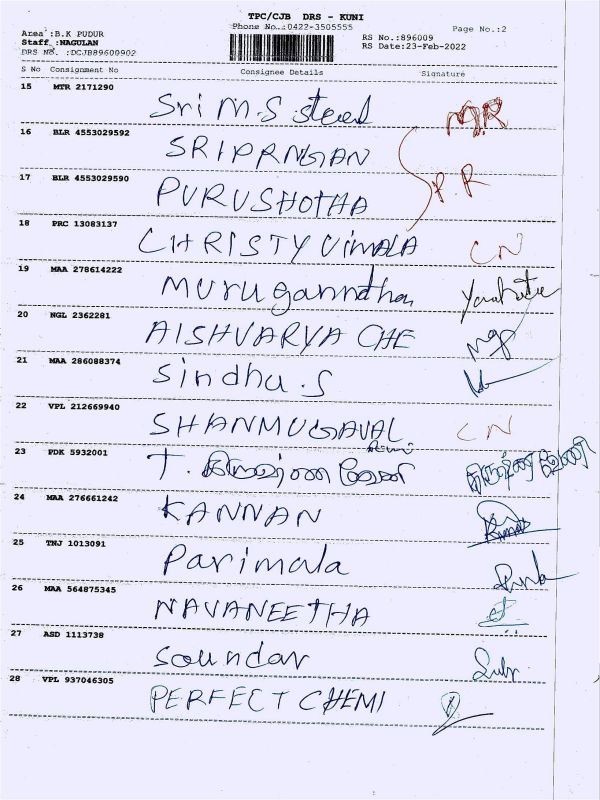 TPC/CJB DRS - KUNI
Phone No.:0422-3505555
Area :B.K PUDUR
Staff :NAGULAN
DRS No. :DCJB89600902
RS No.:896009
RS Date:23-Feb-2022
Page No.:2
S No Consignment No Consignee Details Signature
15 MTR 2171290 Sri M.S steel M.R
16 BLR 4553029592 SRIPRNGAN
17 BLR 4553029590 PURUSHOTHA P.R
18 PRC 13083137 CHRISTY Vimala CN
19 MAA 278614222 Muruganndhan
20 NGL 2362281 AISHVARYA CHE
21 MAA 286088374 Sindhu.S
22 VPL 212669940 SHANMUGAVAL CN
23 PDK 5932001 T.
24 MAA 276661242 KANNAN Kumar
25 TNJ 1013091 Parimala
26 MAA 564875345 NAVANEETHA
27 ASD 1113738 Soundar
28 VPL 937046305 PERFECT CHEMI